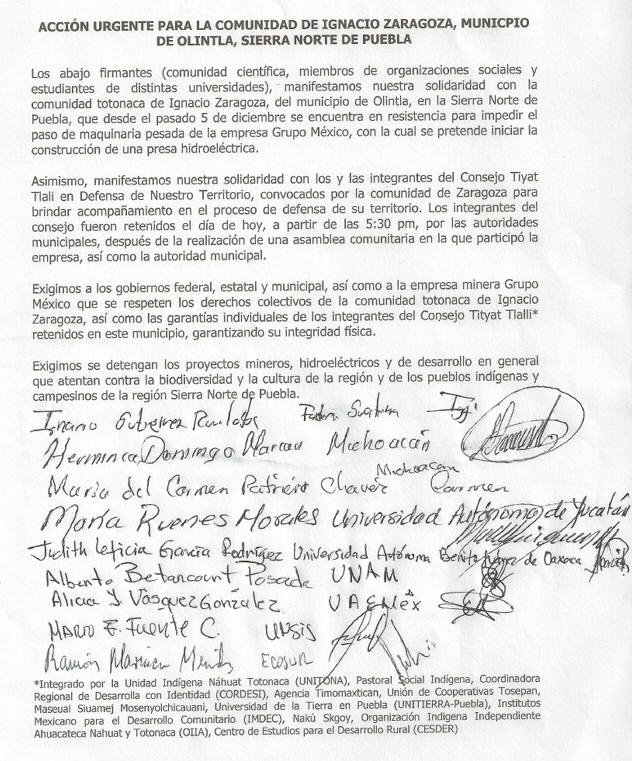 ACCIÓN URGENTE PARA LA COMUNIDAD DE IGNACIO ZARAGOZA, MUNICPIO
DE OLINTLA, SIERRA NORTE DE PUEBLA
Los abajo firmantes (comunidad científica, miembros de organizaciones sociales y
estudiantes de distintas universidades), manifestamos nuestra solidaridad con la
comunidad totonaca de Ignacio Zaragoza, del municipio de Olintla, en la Sierra Norte de
Puebla, que desde el pasado 5 de diciembre se encuentra en resistencia para impedir el
paso de maquinaria pesada de la empresa Grupo México, con la cual se pretende iniciar la
construcción de una presa hidroeléctrica.
Asimismo, manifestamos nuestra solidaridad con los y las integrantes del Consejo Tiyat
Tlali en Defensa de Nuestro Territorio, convocados por la comunidad de Zaragoza para
brindar acompañamiento en el proceso de defensa de su territorio. Los integrantes del
consejo fueron retenidos el día de hoy, a partir de las 5:30 pm, por las autoridades
municipales, después de la realización de una asamblea comunitaria en la que participó la
empresa, así como la autoridad municipal.
Exigimos a los gobiernos federal, estatal y municipal, así como a la empresa minera Grupo
México que se respeten los derechos colectivos de la comunidad totonaca de Ignacio
Zaragoza, así como las garantías individuales de los integrantes del Consejo Tityat Tlalli*
retenidos en este municipio, garantizando su integridad física.
Exigimos se detengan los proyectos mineros, hidroeléctricos y de desarrollo en general
que atentan contra la biodiversidad y la cultura de la región y de los pueblos indígenas y
campesinos de la región Sierra Norte de Puebla.
Gutierrez
Herminia Domingo Michoacán
María del Carmen Patricio Chavéz Michoacan Carmen
María Ruenes Morales Universidad Autónoma de Yucatán
Judith Leticia García Rodríguez Universidad Autónoma Benito Juárez de Oaxaca
Alberto Betancourt Posada UNAM
Alicia Y. Vásquez González UAEMéx
Mario E. Fuente C. UNSIS
Ramón Mariaca Méndez ECOSUR
*Integrado por la Unidad Indígena Náhuat Totonaca (UNITONA), Pastoral Social Indígena, Coordinadora
Regional de Desarrolla con Identidad (CORDESI), Agencia Timomaxtican, Unión de Cooperativas Tosepan,
Maseual Siuamej Mosenyolchicauani, Universidad de la Tierra en Puebla (UNITIERRA-Puebla), Institutos
Mexicano para el Desarrollo Comunitario (IMDEC), Nakú Skgoy, Organización Indigena Independiente
Ahuacateca Nahuat y Totonaca (OIIA), Centro de Estudios para el Desarrollo Rural (CESDER)